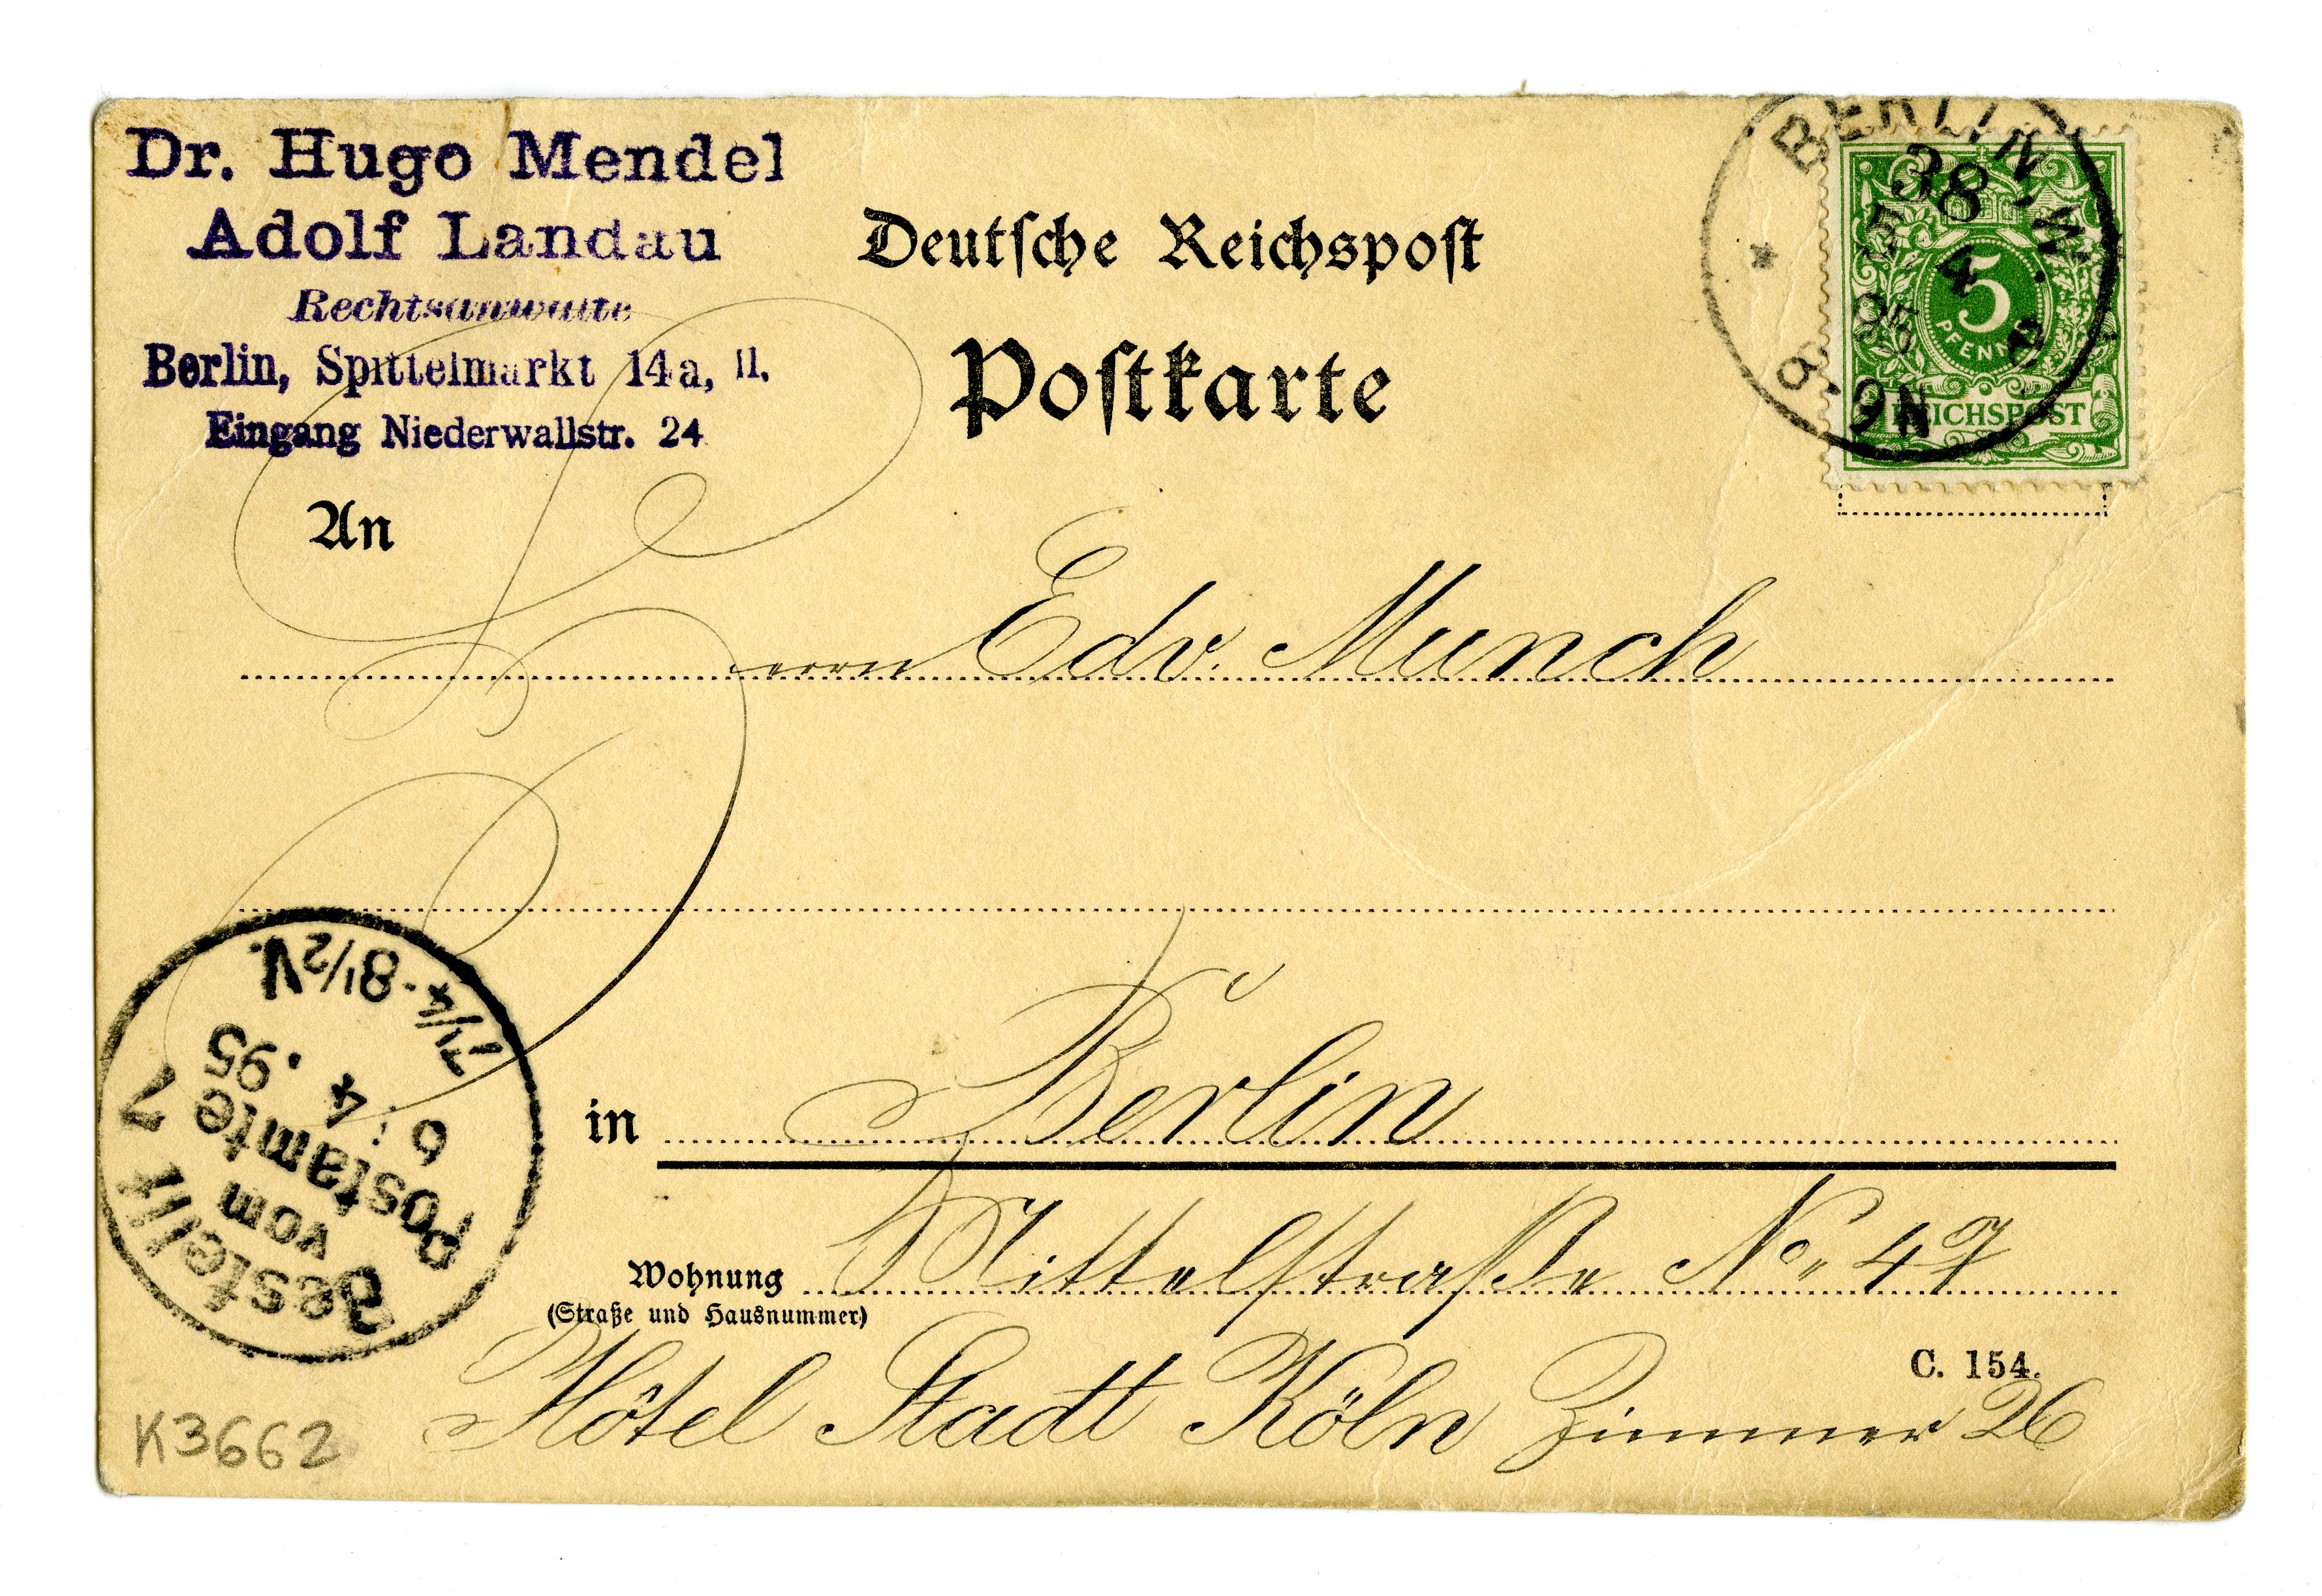 Dr. Hugo Mendel
Adolf Landau
Rechtsanwälte
Berlin, Spittelmarkt 14a, II.
Eingang Niederwallstr. 24
Deutsche Reichspost
Postkarte
BERLIN S.W.
38
5
4
95
8-9N
5
PFENNIG
REICHSPOST
An
Herrn Edv. Munch
in Berlin
Wohnung Mittelstraße No. 47
(Straße und Hausnummer)
C. 154.
Hôtel Stadt Köln Zimmer 26
Bestellt
vom
Postamte 7
6.4.95
7 1/4-8 1/2 V.
K3662